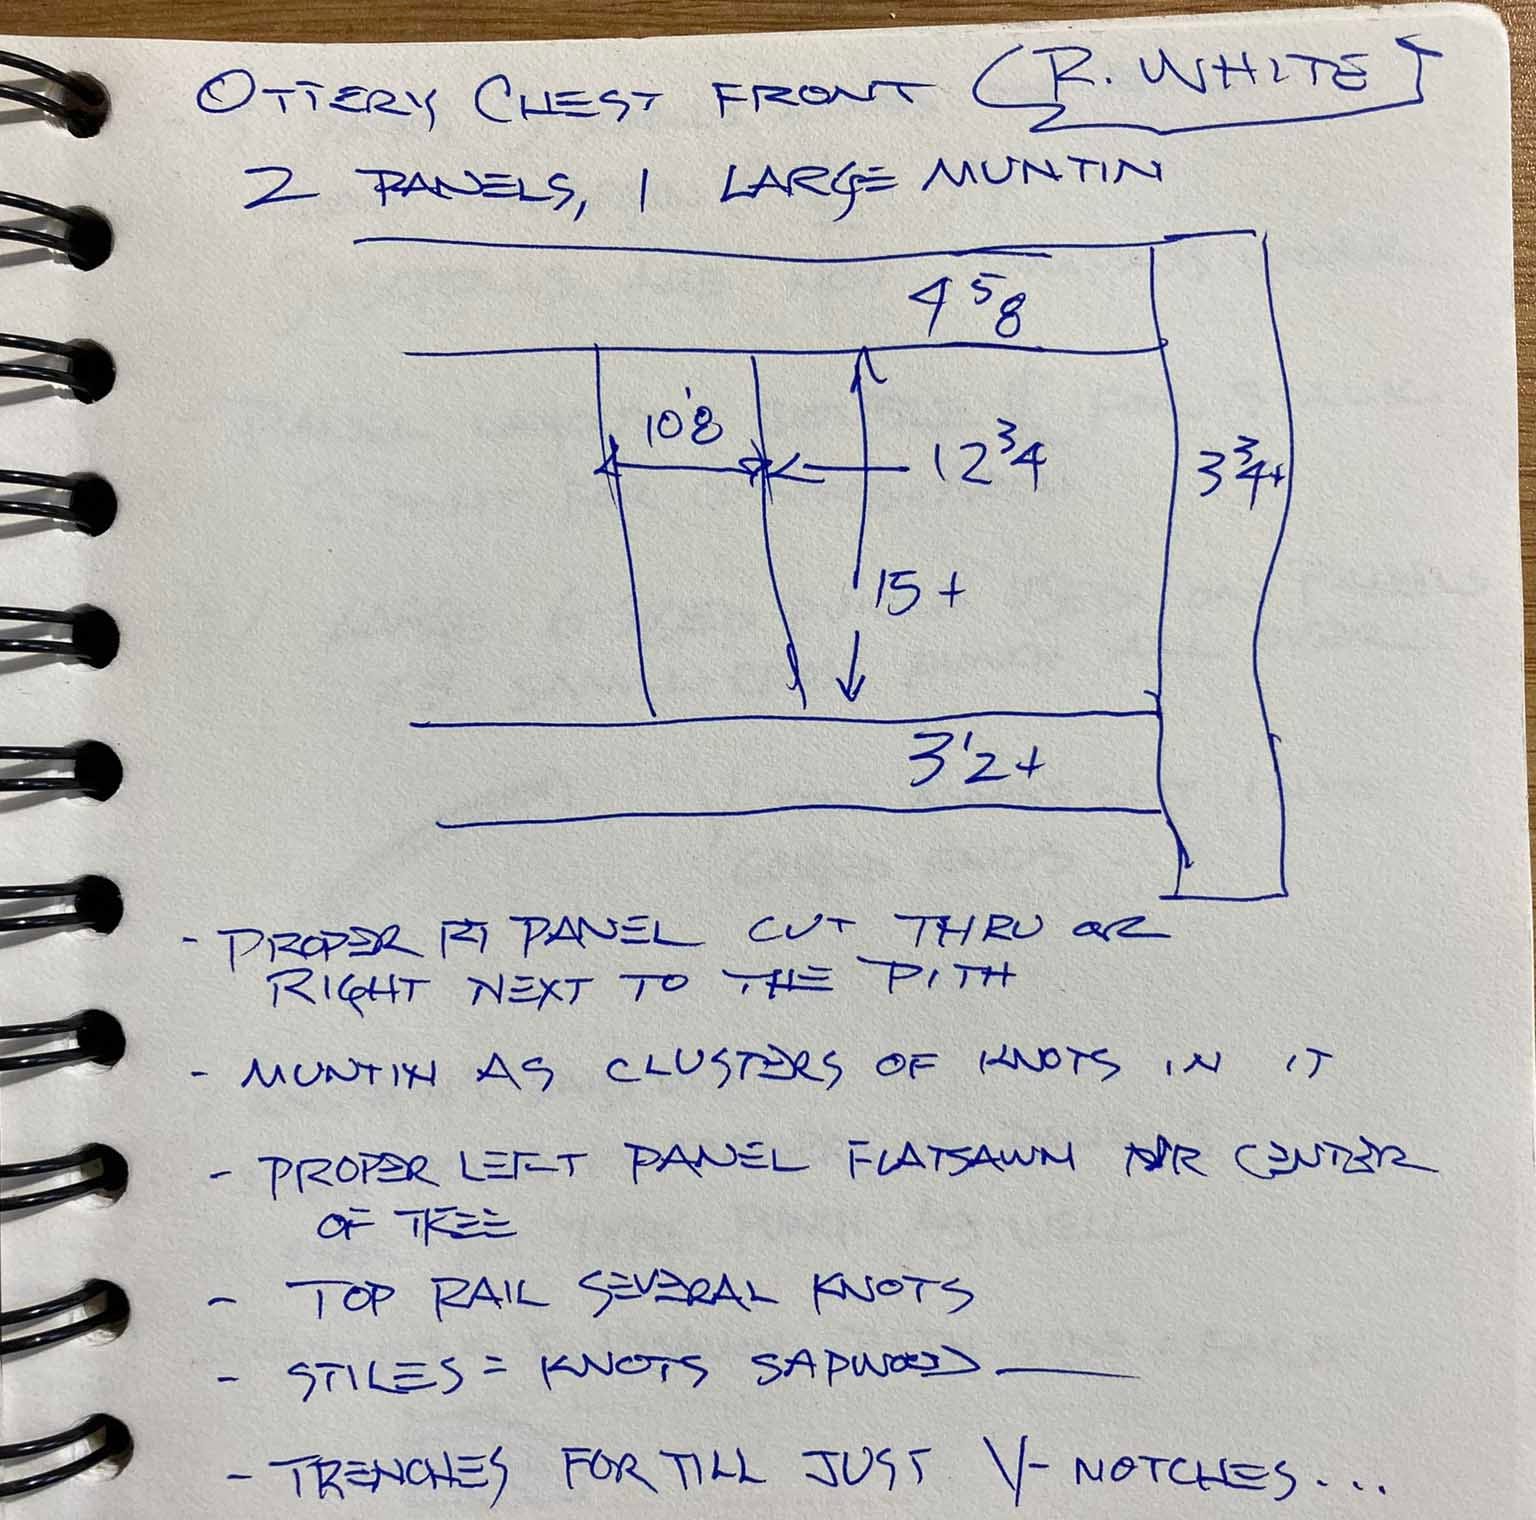 OTTERY CHEST FRONT (R. WHITE]
2 PANELS, 1 LARGE MUNTIN
4 5/8
10 1/8
12 3/4
3 3/4+
15+
3 1/2+
- PROPER RT PANEL CUT THRU OR
RIGHT NEXT TO THE PITH
- MUNTIN AS CLUSTERS OF KNOTS IN IT
- PROPER LEFT PANEL FLATSAWN CENTER
OF TREE
- TOP RAIL SEVERAL KNOTS
- STILES = KNOTS SAPWOOD —
- TRENCHES FOR TILL JUST V-NOTCHES...